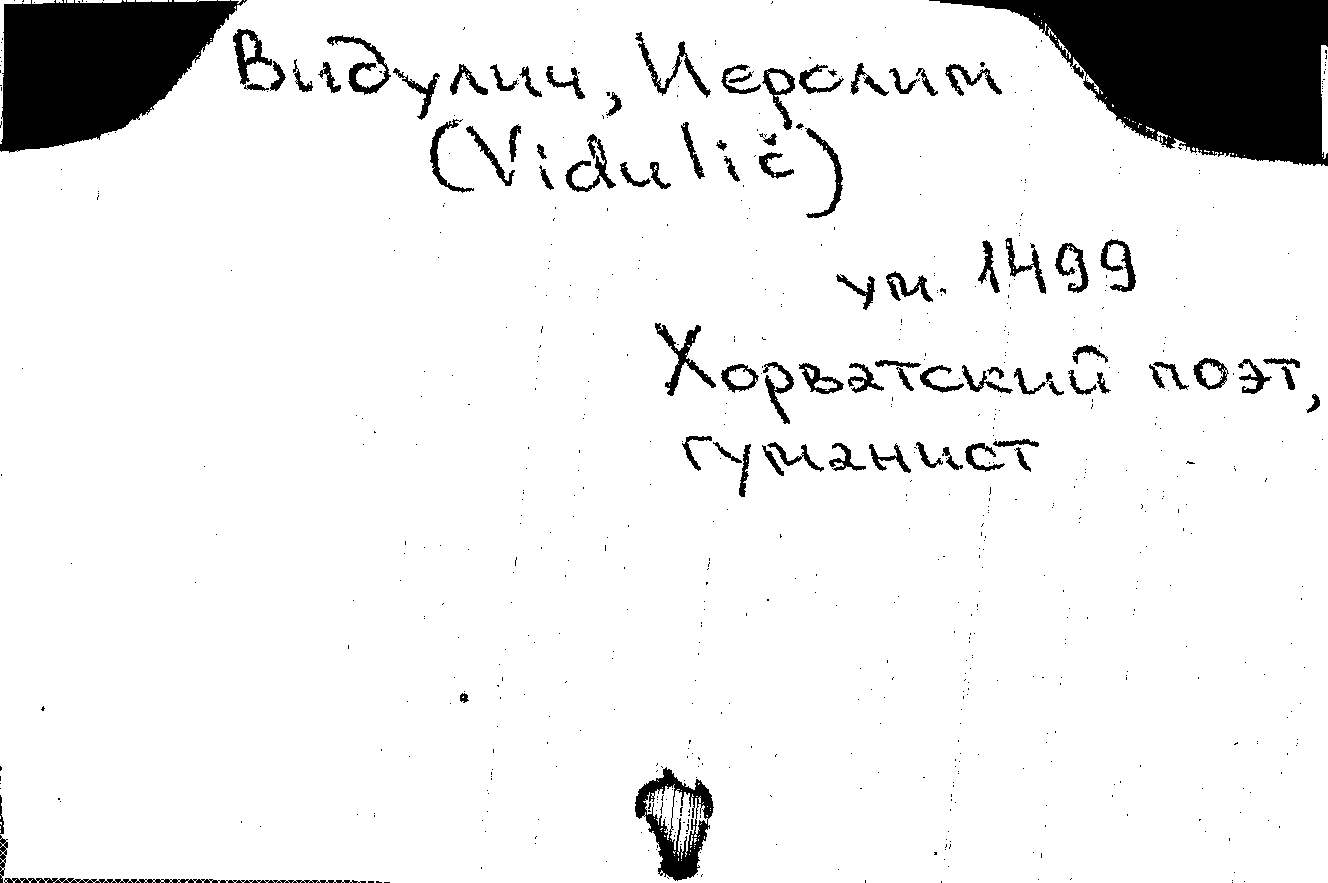 Видулич, Иеролим
(Vidulič)
ум. 1499
Хорватский поэт,
гуманист